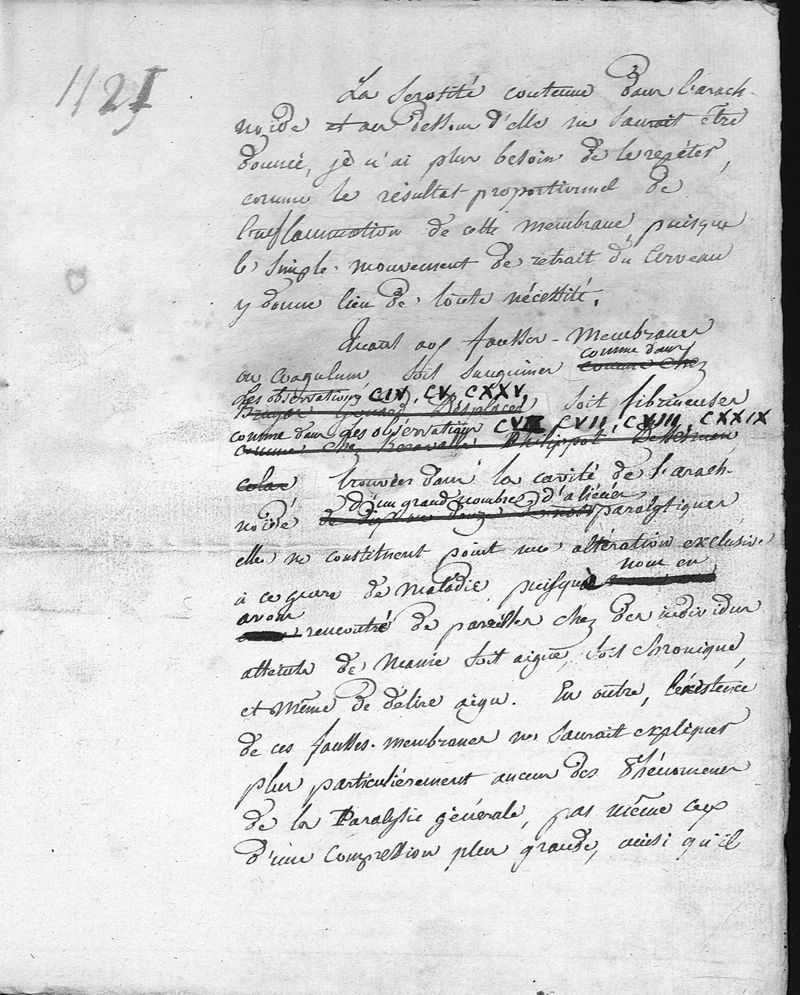 1121
La Serosité contenue dans l'arach-
noïde et au dessous d'elle ne Saurait être
donnée, je n'ai plus besoin de le repéter,
comme le résultat proportionnel de
l'inflammation de cette membrane, puisque
le Simple mouvement de retrait du Cerveau
y donne lieu de toute nécéssité.
Quant aux fausses-Membranes
ou Coagulum Soit Sanguines comme dans
comme chez
les observations CIV, CV, CXXV,
soit fibrineuses
comme dans les observations CVII, CVIII, CXXIX
comme chez Philippot
trouvées dans la cavité de l'arach-
d'un grand nombre d'aliénés
noïde paralytiques
elles ne constituent point une altération exclusive
à ce genre de Maladie, puisque nous en
avons rencontré de pareilles chez des individus
atteints de Manie Soit aiguë, Soit chronique,
et Même de délire aigu. En outre, l'existence
de ces fausses-membranes ne Saurait expliquer
plus particulièrement aucun des Phénomenes
de la Paralysie générale, pas même ceux
d'une compression plus grande, ainsi qu'il